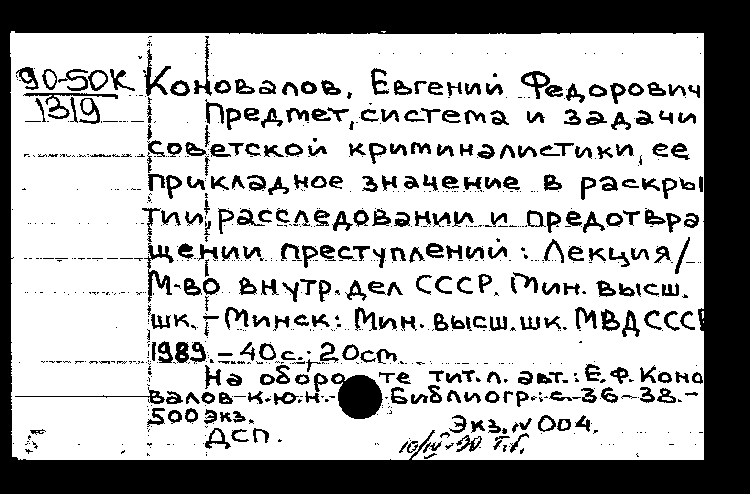 90-50К
1319
Коновалов, Евгений Федорович
Предмет, система и задачи
советской криминалистики, ее
прикладное значение в раскры
тии, расследовании и предотвра
щении преступлений: Лекция/
М-во внутр. дел СССР. Мин. высш.
шк. - Минск: Мин. высш. шк. МВД СССР
1989. - 40 с.; 20 см.
На оборо те тит. л. авт.: Е.Ф. Коно
валов к.ю.н. - Библиогр.: с. 36-38. -
500 экз.
Экз. N 004.
ДСП.